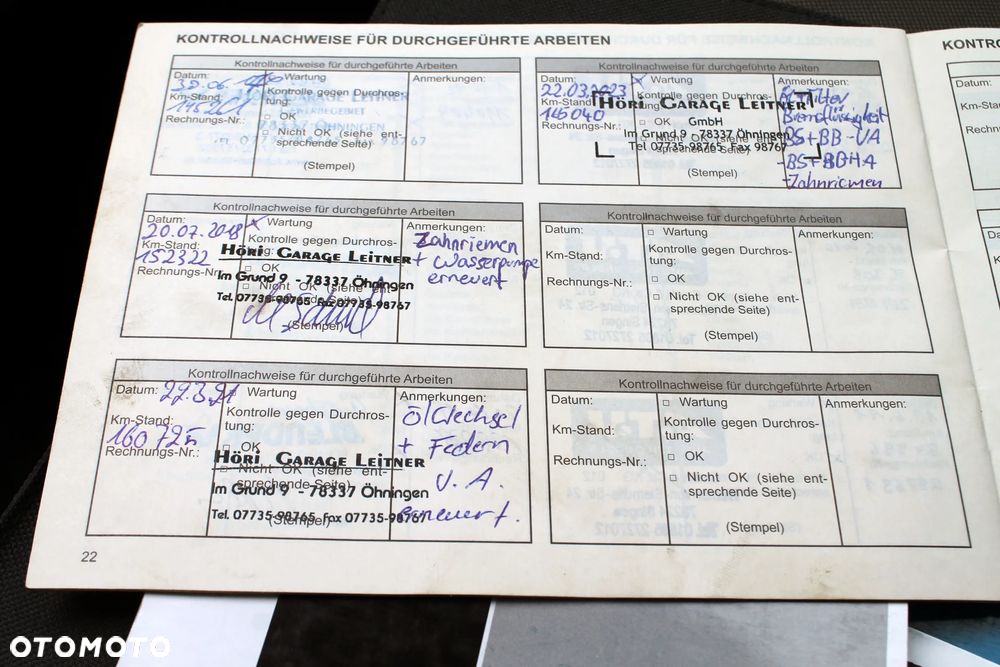 KONTROLLNACHWEISE FÜR DURCHGEFÜHRTE ARBEITEN
Kontrollnachweise für durchgeführte Arbeiten
Datum:
Wartung
Anmerkungen:
Km-Stand:
Kontrolle gegen Durchros-
tung:
GARAGE LEITNER
OK
GEWERBEGEBIET
Rechnungs-Nr.:
Nicht OK (siehe ent-
ÖHNINGEN
sprechende Seite)
(Stempel)
Kontrollnachweise für durchgeführte Arbeiten
Datum: 20.07.2018
x Wartung
Anmerkungen:
Km-Stand:
152322
Kontrolle gegen Durchros-
tung:
HÖRI GARAGE LEITNER
OK
Rechnungs-Nr
Im Grund 9 - 78337 Öhningen
Nicht OK (siehe ent-
sprechende Seite)
Tel. 07735-98765 Fax 07735-98767
(Stempel)
Zahnriemen
+ Wasserpumpe
erneuert
Kontrollnachweise für durchgeführte Arbeiten
Datum: 22.3.21
Wartung
Anmerkungen:
Km-Stand:
160725
Kontrolle gegen Durchros-
tung:
OK
Rechnungs-Nr.:
HÖRI GARAGE LEITNER
Nicht OK (siehe ent-
sprechende Seite)
Im Grund 9 - 78337 Öhningen
Tel. 07735-98765 Fax 07735-98767
(Stempel)
Ölwechsel
+ Federn
V.A.
erneuert.
22
Kontrollnachweise für durchgeführte Arbeiten
Datum:
22.03.2023
x Wartung
Anmerkungen:
Km-Stand:
165040
Kontrolle gegen Durchros-
tung:
HÖRI GARAGE LEITNER
OK GmbH
Rechnungs-Nr.:
Im Grund 9 · 78337 Öhningen
Nicht OK (siehe ent-
sprechende Seite)
Tel 07735-98765 Fax 98767
(Stempel)
Bremsflüssigkeit
BS+BB-VA
-BS+BBHA
-Zahnriemen
Kontrollnachweise für durchgeführte Arbeiten
Datum:
Wartung
Anmerkungen:
Km-Stand:
Kontrolle gegen Durchros-
tung:
OK
Rechnungs-Nr.:
Nicht OK (siehe ent-
sprechende Seite)
(Stempel)
Kontrollnachweise für durchgeführte Arbeiten
Datum:
Wartung
Anmerkungen:
Km-Stand:
Kontrolle gegen Durchros-
tung:
OK
Rechnungs-Nr.:
Nicht OK (siehe ent-
sprechende Seite)
(Stempel)
KONTRO
Datum:
Km-Stan
Rechnun
OTOMOTO